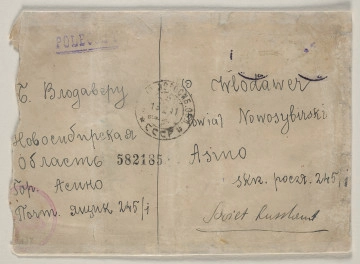 POLEC
Б. Влодаверу
Новосибирская
Область 582185
Гор. Асино
Почт. ящик 245/i
СССР
Włodawer
Nowosybirski
Asino
skr. poczt. 245/i
Soviet Russland